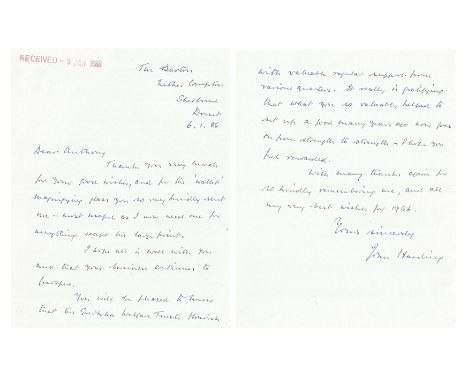 RECEIVED - 9 JAN 1986
The Barton
Nether Compton
Sherborne
Dorset
6.1.86
Dear Anthony
Thank you very much
for your good wishes, and for the 'wallet'
magnifying glass you so very kindly sent
me - most useful as I now need one for
everything except the large print.
I hope all is well with you
and that your business continues to
prosper.
You will be pleased to know
that the Gurkha Welfare Trusts flourish
with valuable regular support from
various quarters. It really is gratifying
that what you so valuably helped to
set up a good many years ago now goes
on from strength to strength - I hope you
feel rewarded.
With many thanks again for
so kindly remembering me, and all
my very best wishes for 1986.
Yours sincerely
John Harding